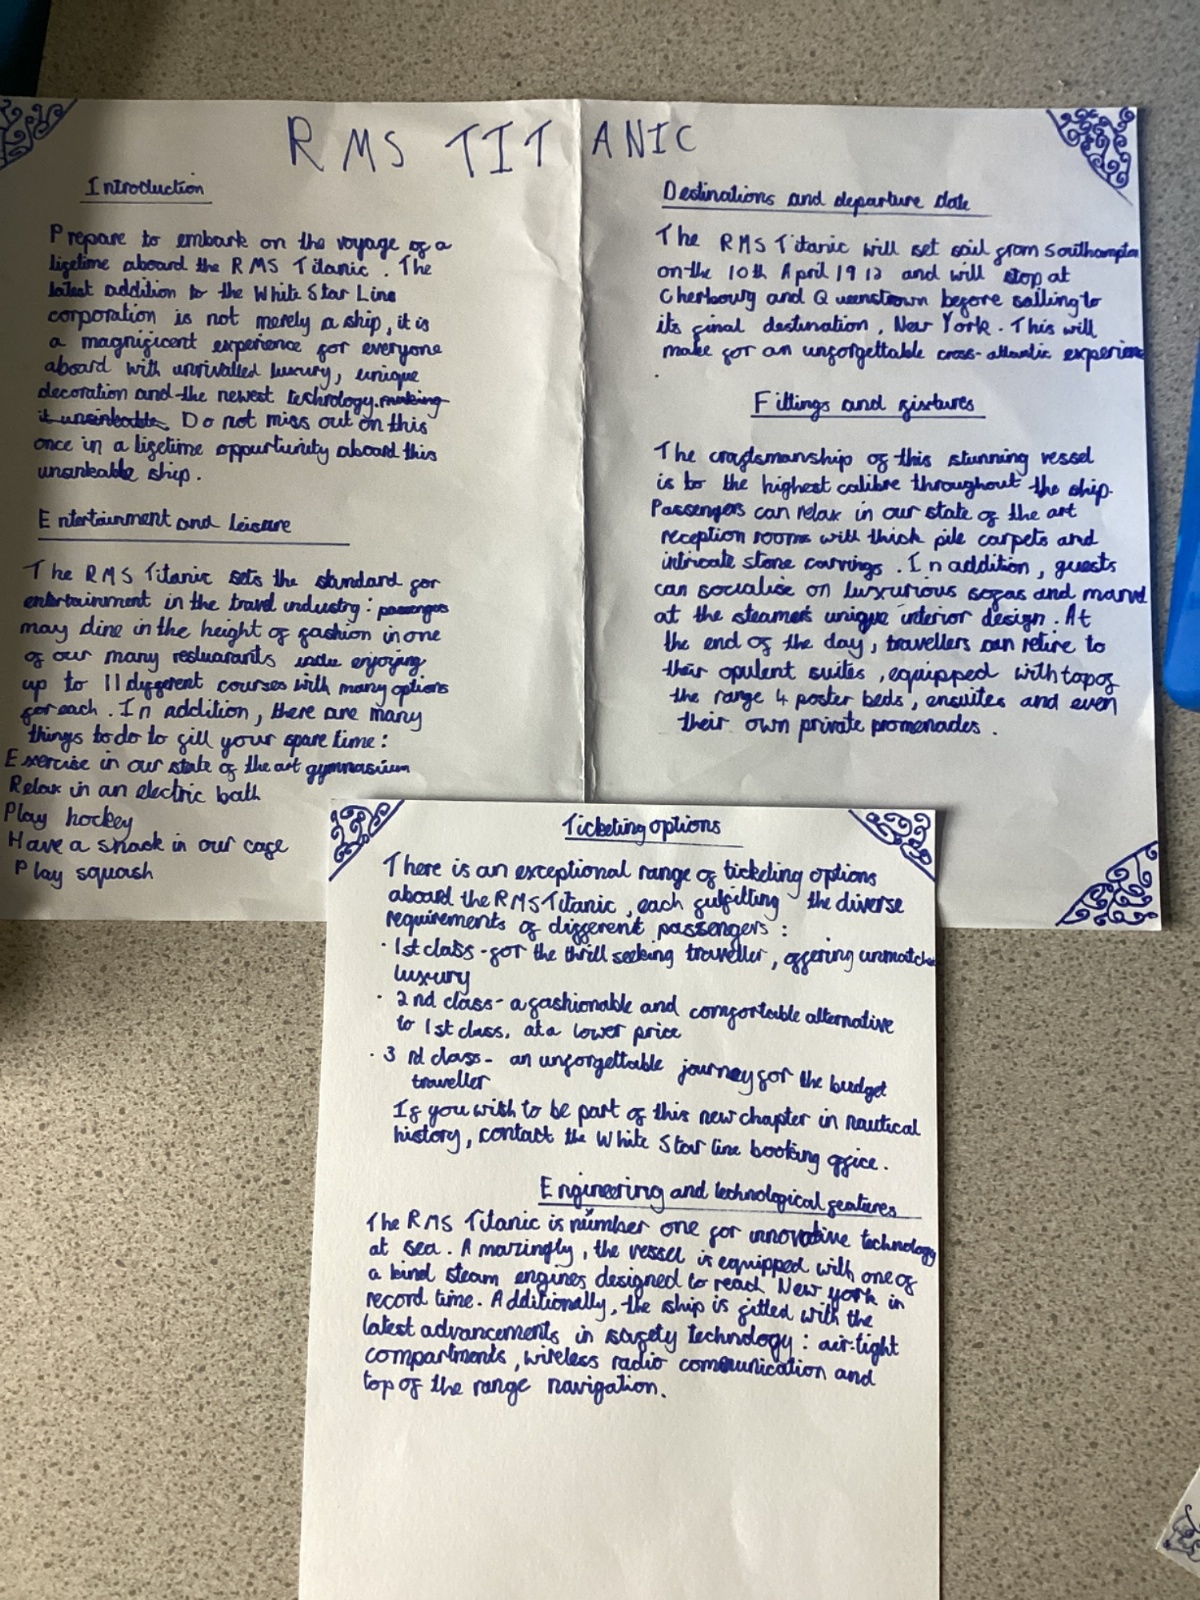 RMS TITANIC
Introduction
Prepare to embark on the voyage of a
lifetime aboard the RMS Titanic. The
latest addition to the White Star Line
corporation is not merely a ship, it is
a magnificent experience for everyone
aboard with unrivalled luxury, unique
decoration and the newest technology. making
it unsinkable. Do not miss out on this
once in a lifetime oppurtunity aboard this
unsinkable ship.
Entertainment and leisure
The RMS Titanic sets the standard for
entertainment in the travel industry: passengers
may dine in the height of fashion in one
of our many restuarants enjoying
up to 11 different courses with many options
for each. In addition, there are many
things to do to fill your spare time:
Exercise in our state of the art gymnasium
Relax in an electric bath
Play hockey
Have a snack in our cafe
Play squash
Destinations and departure date
The RMS Titanic will set sail from Southampton
on the 10th April 1912 and will stop at
Cherbourg and Queenstown before sailing to
its final destination, New York. This will
make for an unforgettable cross-atlantic experience
.
Fittings and fixtures
The craftsmanship of this stunning vessel
is to the highest calibre throughout the ship.
Passengers can relax in our state of the art
reception rooms with thick pile carpets and
intricate stone carvings. In addition, guests
can socialise on luxurious sofas and marvel
at the steamers unique interior design. At
the end of the day, travellers can retire to
their opulent suites, equipped with top of
the range 4 poster beds, ensuites and even
their own private promenades.
Ticketing options
There is an exceptional range of ticketing options
aboard the RMS Titanic, each fulfilling the diverse
requirements of different passengers:
· 1st class - for the thrill seeking traveller, offering unmatched
luxury
· 2nd class - a fashionable and comfortable alternative
to 1st class, at a lower price
· 3rd class - an unforgettable journey for the budget
traveller
If you wish to be part of this new chapter in nautical
history, contact the White Star line booking office.
Engineering and technological features
The RMS Titanic is number one for innovative technology
at sea. Amazingly, the vessel is equipped with one of
a kind steam engines designed to reach New York in
record time. Additionally, the ship is fitted with the
latest advancements in safety technology: air-tight
compartments, wireless radio communication and
top of the range navigation.